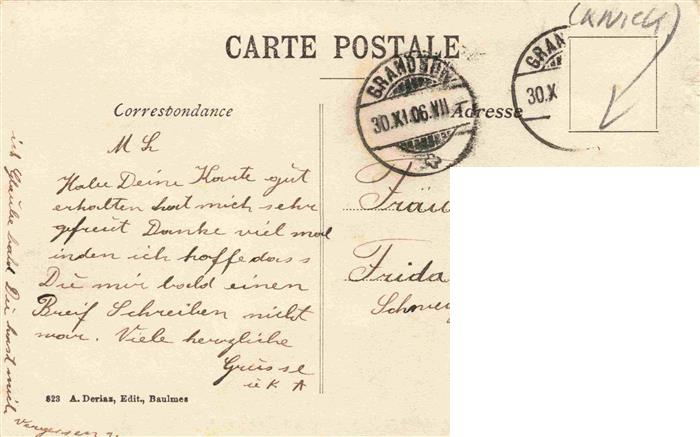 (KNICK)
CARTE POSTALE
GRANDSON
30.XI.06.VII
GRAN
30.X
Correspondance
Adresse
M L
Habe Deine Karte gut
erhalten hat mich sehr
gefreut Danke viel mal
inden ich hoffe dass
Du mir bald einen
Breif Schreiben nicht
war. Viele herzliche
Grüsse
u K A
ich Glaube bald Du hast mich
Vergessen
Fräu
Frida
Schwey
823 A. Deriaz, Edit., Baulmes